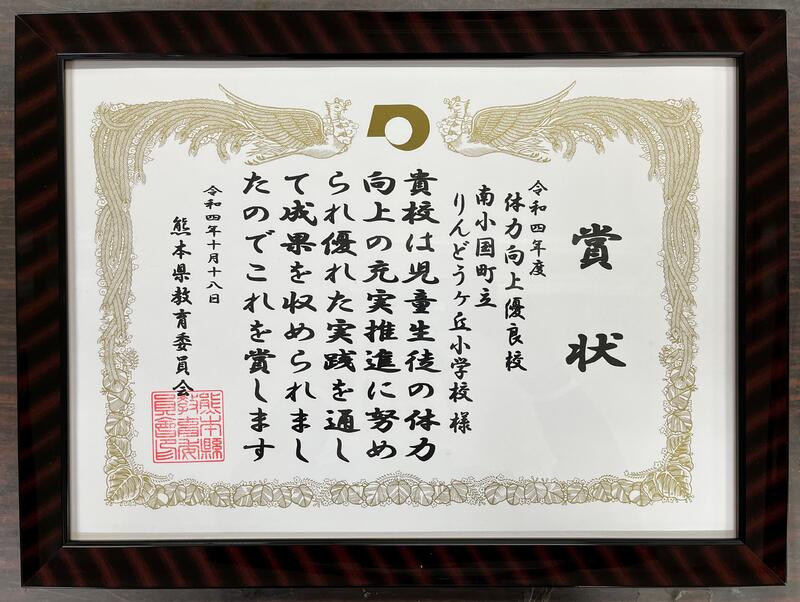 賞状
令和四年度
体力向上優良校
南小国町立
りんどうヶ丘小学校 様
貴校は児童生徒の体力
向上の充実推進に努め
られ優れた実践を通し
て成果を収められまし
たのでこれを賞します
令和四年十月十八日
熊本県教育委員会
熊本縣
教育委
員會印